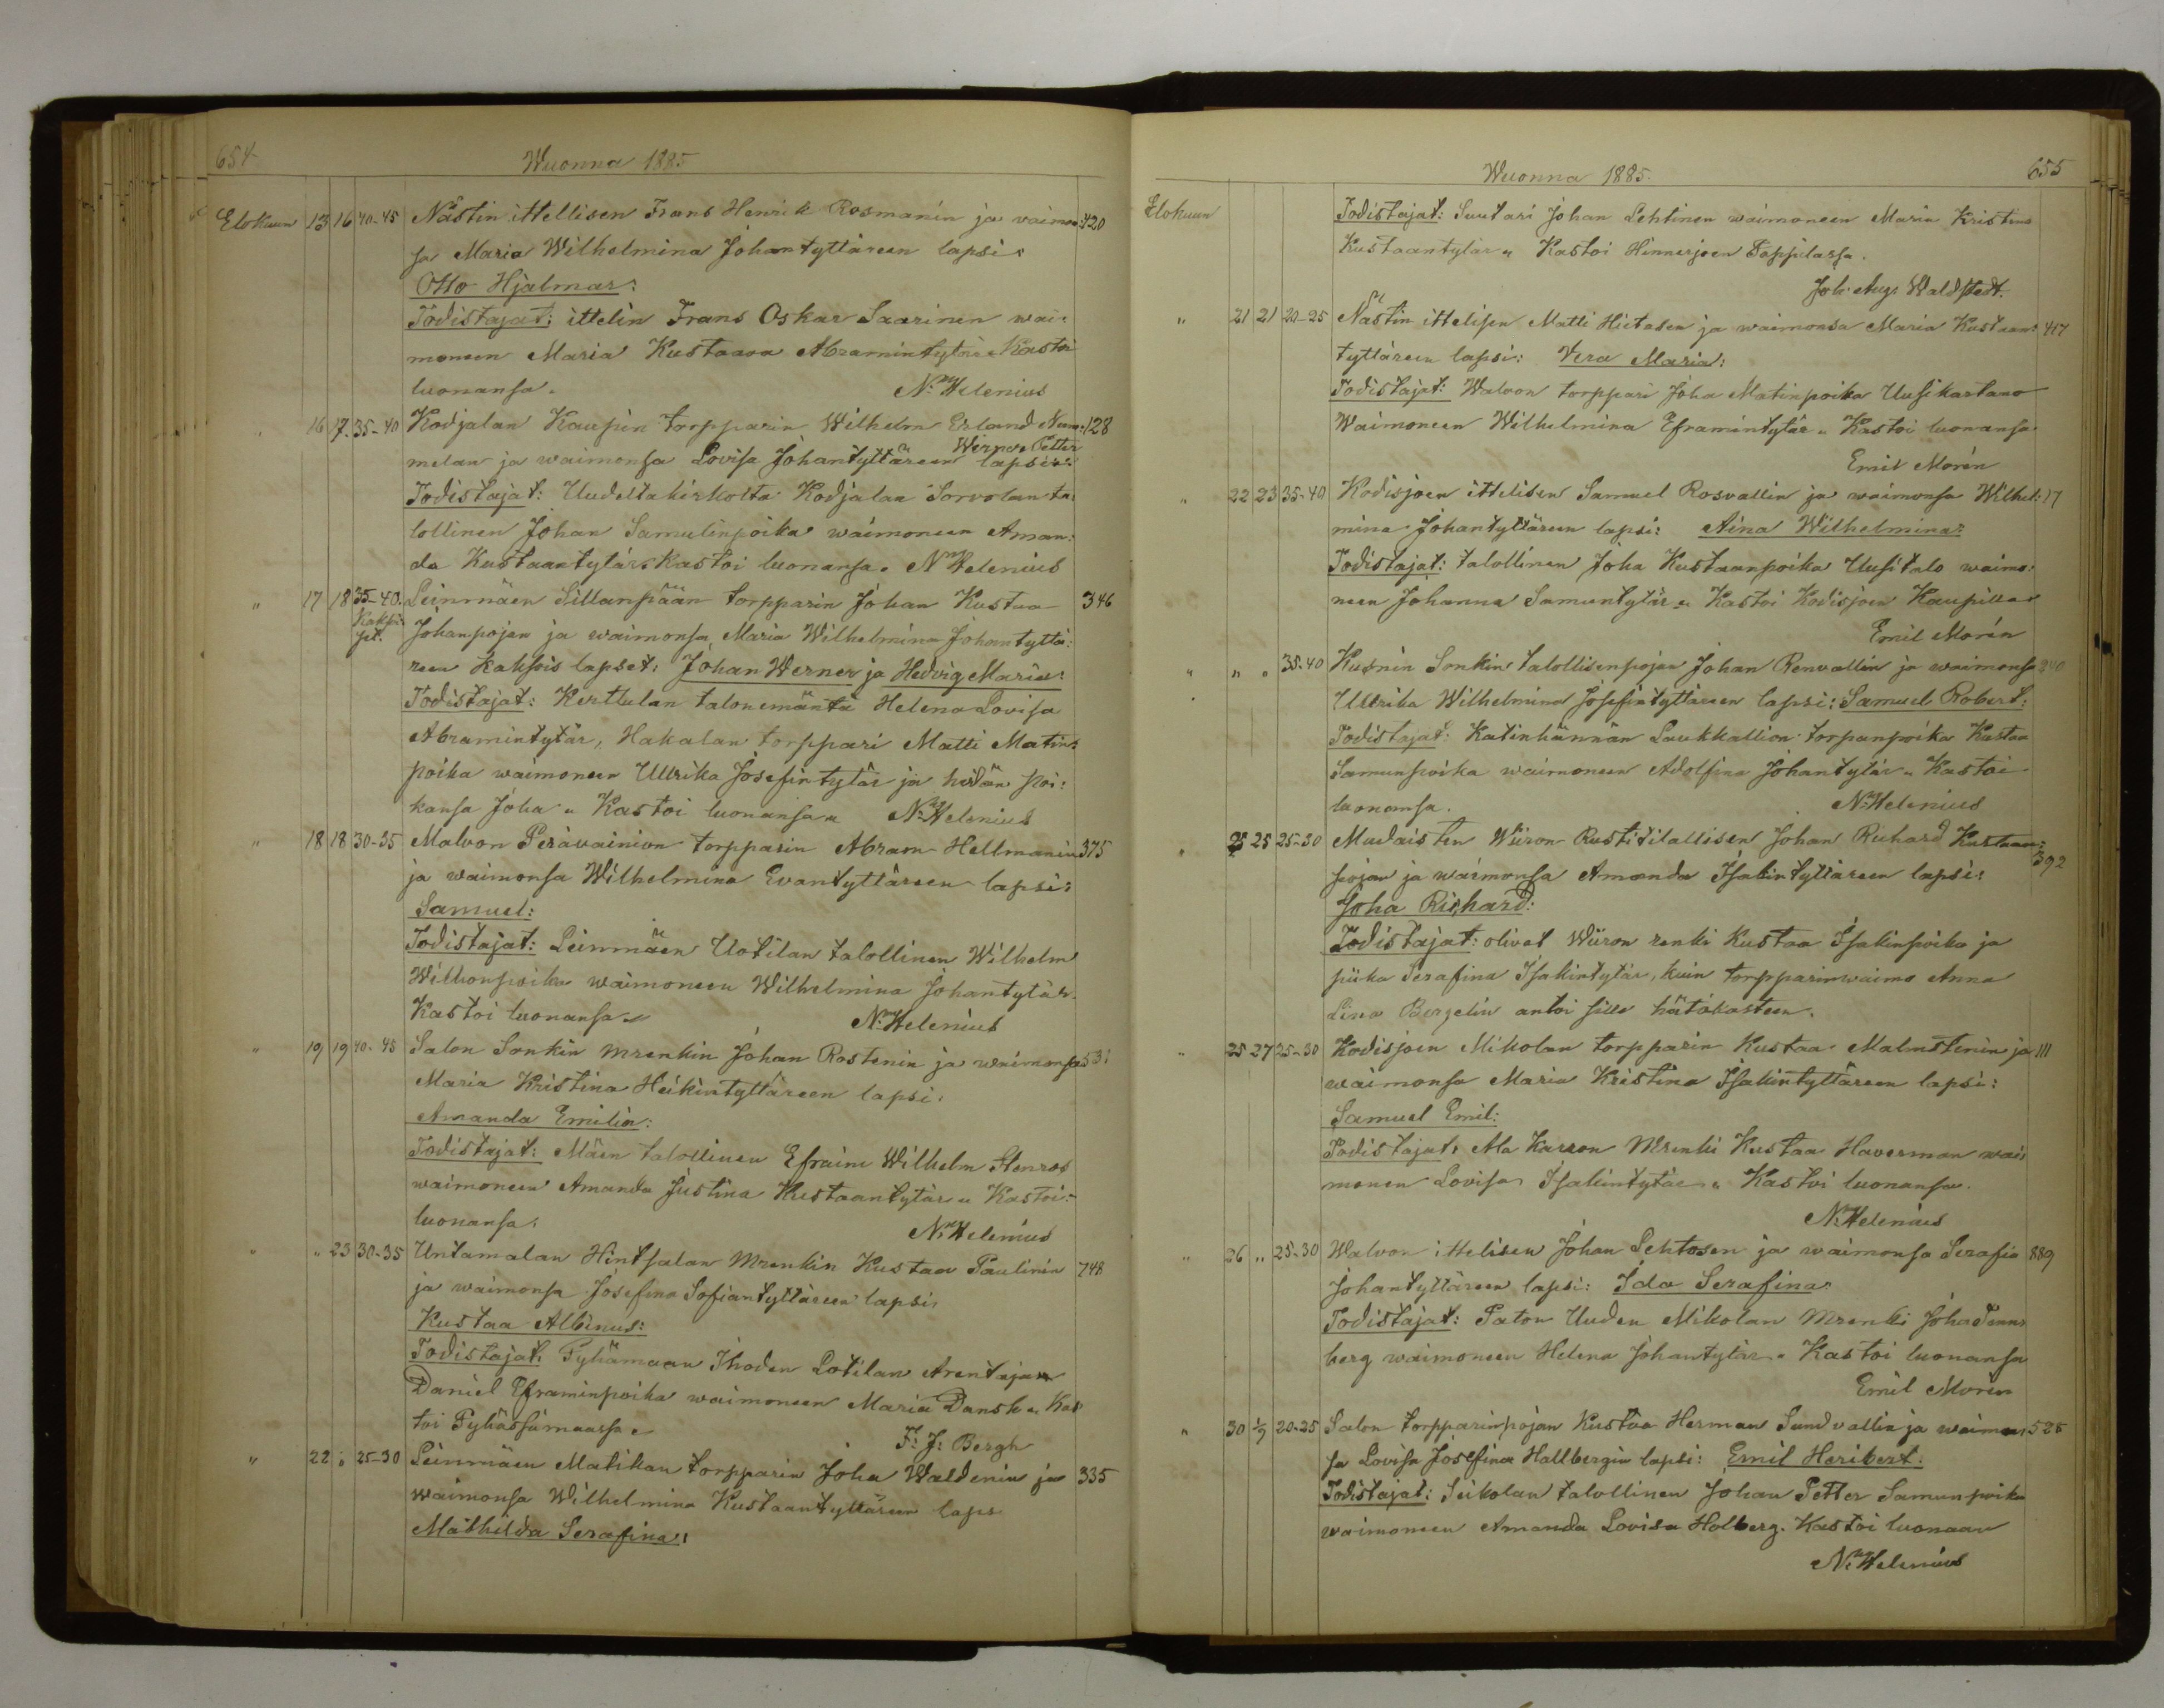 654
Wuonna 1885
Elokuun 13 16 40-45 Nästin ittellisen Frans Henrik Rosmanin ja vaimon: 420
sa Maria Wilhelmina Johantyttäreen lapsi:
Otto Hjalmar:
Todistajat: ittelin Frans Oskar Saarinen wai:
moneen Maria Kustaava Abramintytär. Kastoi
luonansa. N: Helenius
16 17 35-40 Kodjalan Kaupin torpparin Wilhelm Erland Num: 128
melan ja waimonsa Lovisa Johantyttäreen lapsi: Werner Petter
Todistajat: Uudeltakirkolta Kodjalan Sorvolan ta:
lollinen Johan Samulinpoika waimoneen Aman:
da Kustaantytär. Kastoi luonansa. N: Helenius
" 17 18 35-40. Leinmäen Sillanpään torpparin Johan Kustaa 346
Johanpojan ja waimonsa Maria Wilhelmina Johantyttä:
reen kaksois lapset: Johan Werner ja Hedvig Maria:
Todistajat: Kerttulan talonemäntä Helena Lovisa
Abramintytär, Hakalan torppari Matti Matin:
poika waimoneen Ullrika Josefintytär ja heidän poi:
kansa Joha " Kastoi luonansa " N: Helenius
" 18 18 30-35 Malvon Perävainion torpparin Abram Hellmanin 375
ja waimonsa Wilhelmina Evantyttäreen lapsi:
Samuel:
Todistajat: Leinmäen Uotilan talollinen Wilhelm
Wilhonpoika waimoneen Wilhelmina Johantytär.
Kastoi luonansa N: Helenius
" 19 19 40-45 Salon Sonkin Mrenkin Johan Rostenin ja waimonsa 531
Maria Kristina Heikintyttäreen lapsi:
Amanda Emilia:
Todistajat: Mäen talollinen Efraim Wilhelm Stenros
waimoneen Amanda Justina Kustaantytär " Kastoi
luonansa. N: Helenius
" " 23 30-35 Untamalan Hintsalan Mrenkin Kustaa Paulinin 748
ja waimonsa Josefina Sofiantyttäreen lapsi:
Kustaa Albinus:
Todistajat: Pyhämaan Ihoden Lotilan Arentajan
Daniel Eframinpoika waimoneen Maria Dansk " Kas
toi Pyhässämaassa F: J: Bergh
" 22 " 25-30 Leinmäen Matikan torpparin Joha Waldenin ja 335
waimonsa Wilhelmina Kustaantyttäreen laps
Mathilda Serafina:
Wuonna 1885. 655
Elokuun Todistajat: Suutari Johan Lehtinen waimoneen Maria Kristina
Kustaantytär " Kastoi Hinnerjoen Pappilassa.
Joh. Aug. Waldstedt.
" 21 21 20-25 Nästin ittelisen Matti Hietasen ja waimonsa Maria Kustaan: 417
tyttäreen lapsi: Vera Maria:
Todistajat: Walvon torppari Joha Matinpoika Uusikartano
Waimoneen Wilhelmina Eframintytär " Kastoi luonansa
Emil Morén
" 22 23 35-40 Kodisjoen ittelisen Samuel Rosvallin ja waimonsa Wilhel: 17
mina Johantyttäreen lapsi: Aina Wilhelmina:
Todistajat: talollinen Joha Kustaanpoika Uusitalo waimo:
neen Johanna Samuntytär " Kastoi Kodisjoen Kaupilla
Emil Morén
" " " 35-40 Kusnin Sonkin talollisenpojan Johan Renvallin ja waimonsa 240
Ullrika Wilhelmina Josefintyttäreen lapsi: Samuel Robert:
Todistajat: Katinhännän Laukkallion torpanpoika Kustaa
Samunpoika waimoneen Adolfina Johantytär " Kastoi
luonansa. N: Helenius
" 25 25 25-30 Mudaisten Würon Rustitilallisen Johan Richard Kustaan: 392
pojan ja waimonsa Amanda Isakintyttäreen lapsi:
Joha Richard:
Todistajat: olivat Wiiron renki Kustaa Isakinpoika ja
piika Serafina Isakintytär, kuin torpparinwaimo Anna
Lina Bergelin antoi sille hätäkasteen.
" 25 27 25-30 Kodisjoen Mikolan torpparin Kustaa Malmstenin ja 111
waimonsa Maria Kristina Isakintyttäreen lapsi:
Samuel Emil:
Todistajat: Ala Karson Mrenki Kustaa Haverman wai:
moneen Lovisa Isakintytär " Kastoi luonansa.
N: Helenius
" 26 " 25-30 Walvon ittelisen Johan Lehtosen ja waimonsa Serafia 889
Johantyttäreen lapsi: Ida Serafina:
Todistajat: Paton Uuden Mikolan Mrenki Joha Tenns
berg waimoneen Helena Johantytär " Kastoi luonansa
Emil Morén
" 30 1/9 20-25 Salon torpparinpojan Kustaa Herman Sundvallin ja waimon: 525
sa Lovisa Josefina Hallbergin lapsi: Emil Heribert:
Todistajat: Seikolan talollinen Johan Petter Samunpoika
waimoneen Amanda Lovisa Holberg. Kastoi luonaan
N: Helenius